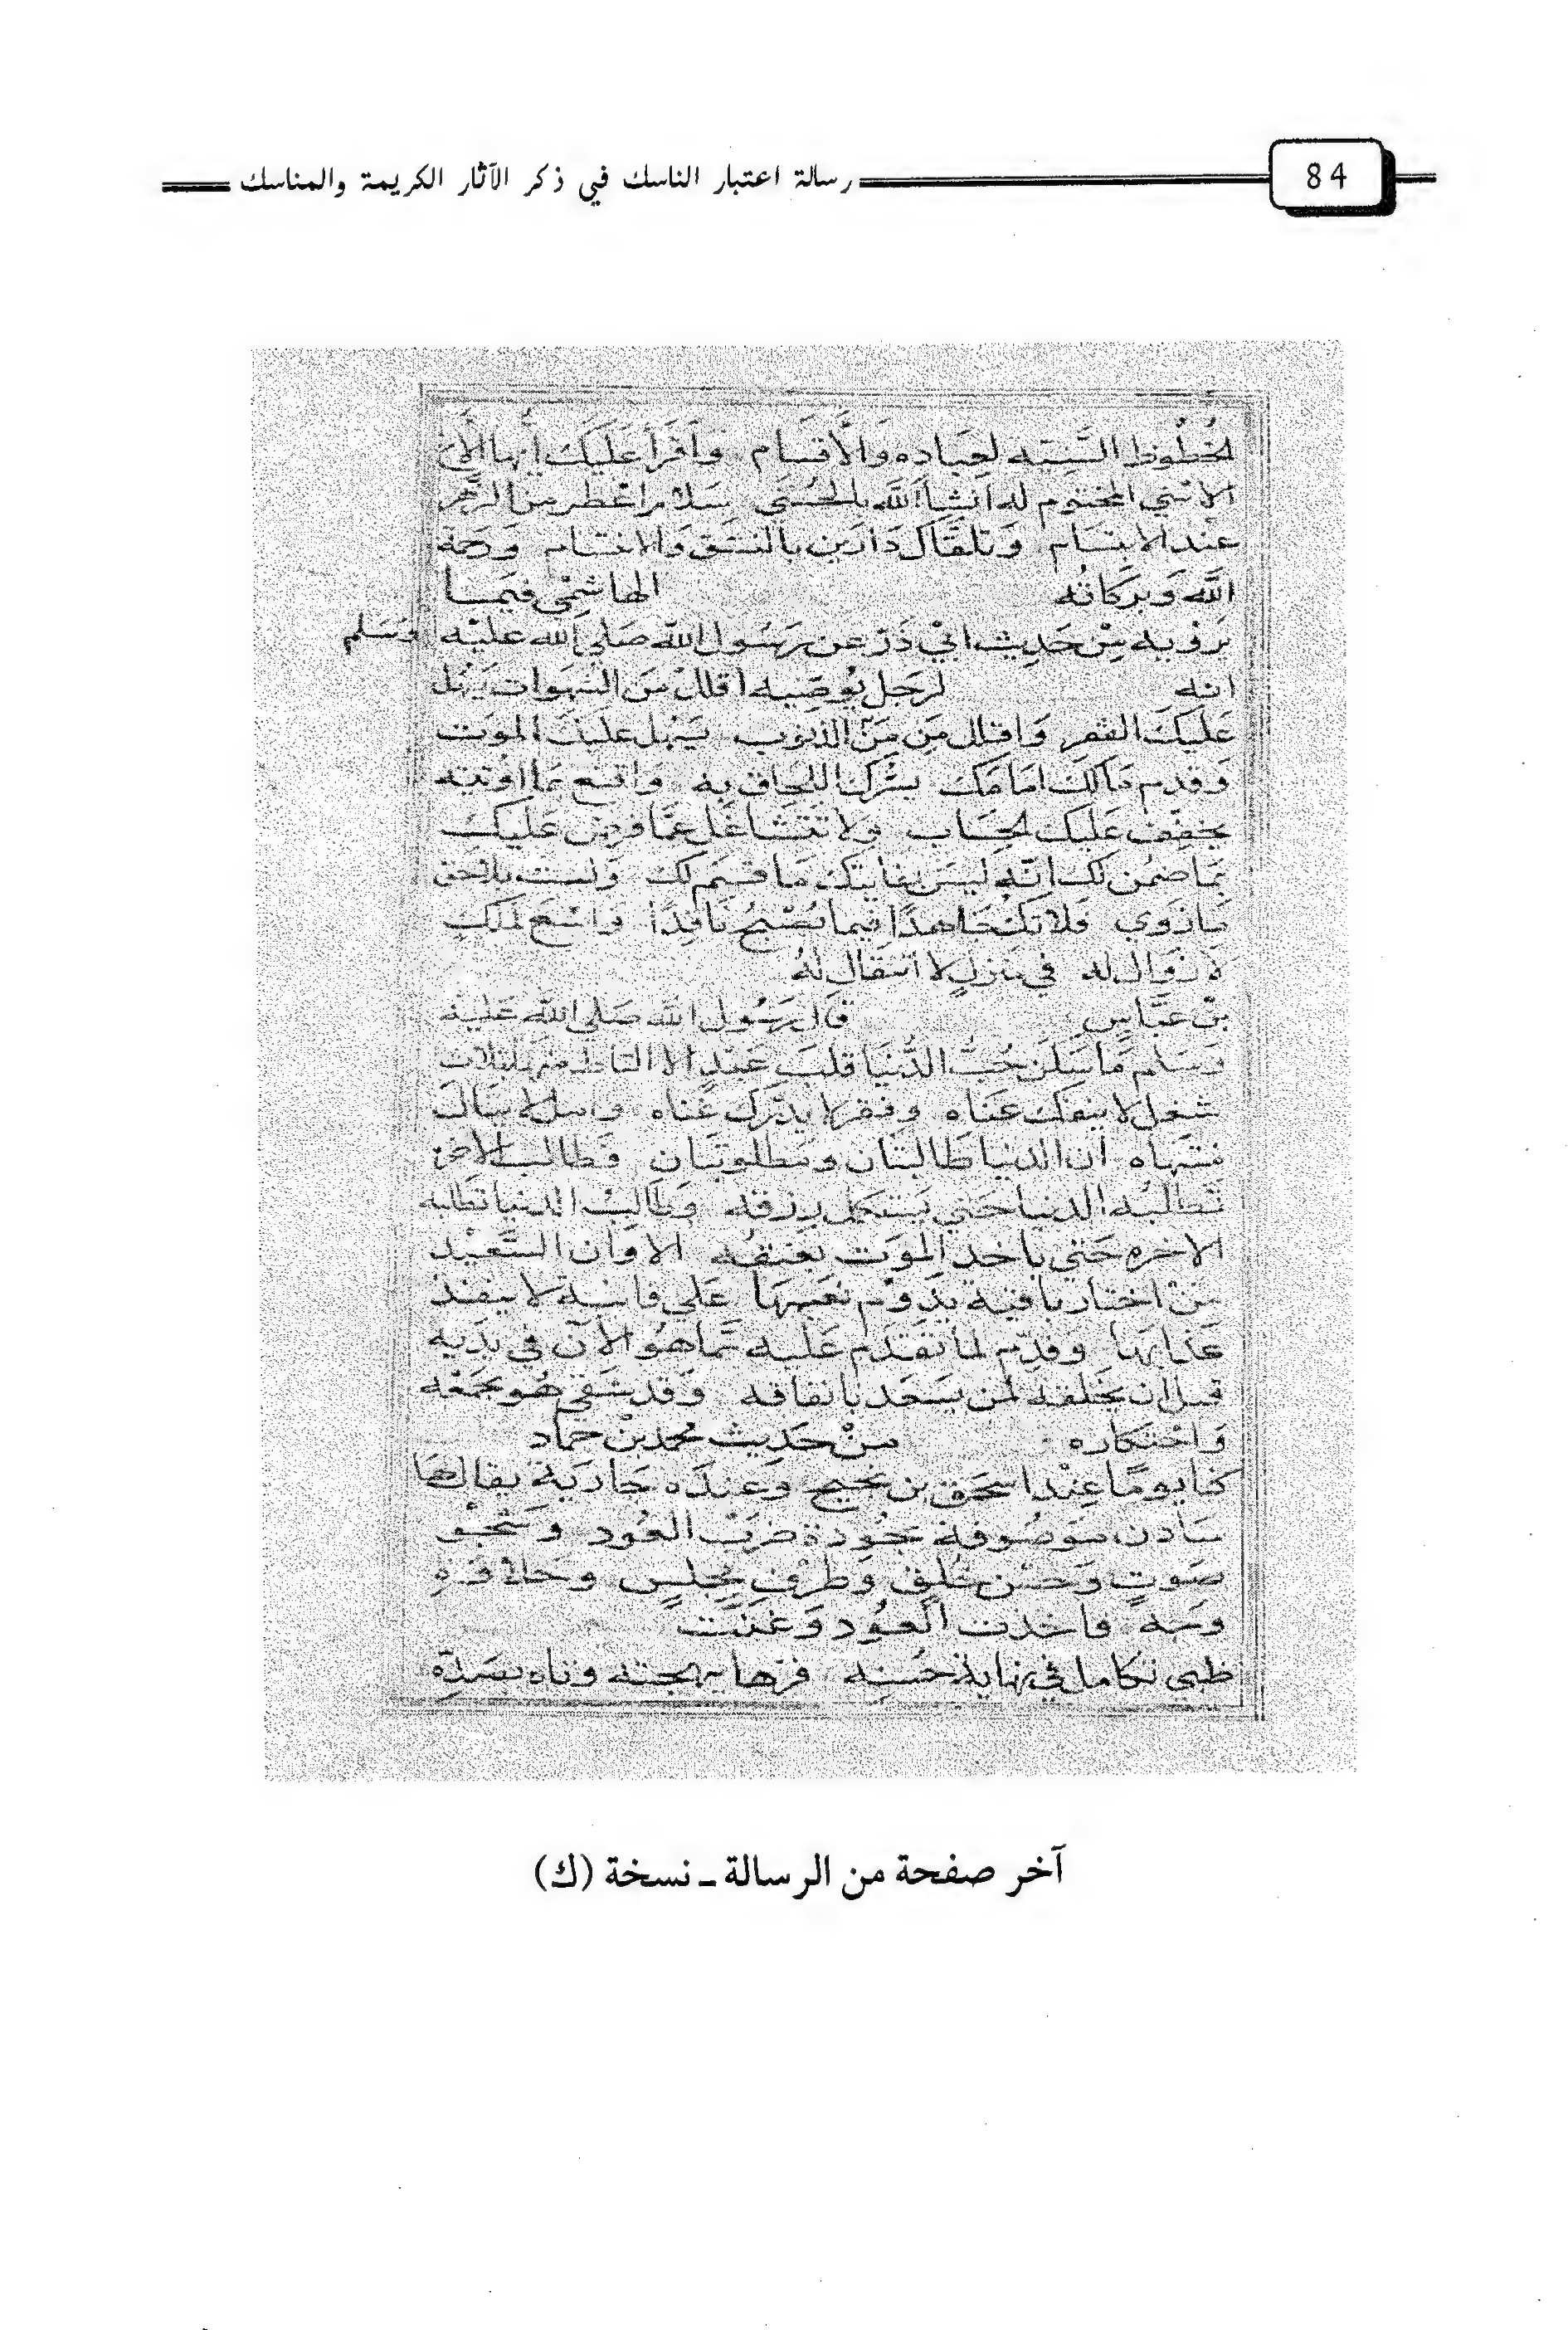 84
رسالة اعتبار الناسك في ذكر الآثار الكريمة والمناسك
الحُظوظ السَّنِيّه لعِبَادِه وَالأَقسَام وَأَقرَأ عَلَيكَ أيها الأخ
عند الابتسَام وتلقاك دَارَين بالنشق وَالاختتام وَرحمة
الله وَبَركاتُه الهاشمي فيمَا
يَرويه مِنْ حَديث ابي ذَرّ عن رَسُول الله صَلي الله عليه وسَلم
انه لرجل يُوصيه اقلل مِنَ الشهوات يسْهل
عَلَيكَ الفقر وَاقلل مِن مِنَ الذنوب يسْهل عليك الموَت
وَقدم مَالكَ امَامَك يسُرّك اللحاق به واقنع بما اوتيته
يخفف عَلَيك الحسَاب ولا تتشاغَل عَمّا فرض عَليك
بمَا ضمُن لك انّه ليسَ بفايتك مَا قسم لك وَلست بلاحق
مَا زوي فلا تك جَاهدًا فيما يُصْبح نافدًا وَاسْعَ لملك
لا زوال له في منزلٍ لا انتقال لهُ
بن عَبّاسٍ قال رسُول الله صَلي الله عَليه
وَسَلم مَا سَكن حُبُّ الدُّنيَا قلبَ عَبدٍ الا التاط منها بثلاث
شغل لا ينفك عنَاه وفقر لا يدرَك غناه وامل لا ينال
منتهاه ان الدنيا طالبتان ومطلوبتان فطالب الاخرة
تطالبُه الدنيا حَتي يستكمل رزقه وطالبُ الدنيا تطلبه
الاخره حَتي ياخد الموَت بعنقه الا وان السَّعيد
مَنْ اختار باقية يدَوم نعيمهَا عَلي فانية لا ينفد
عذابها وقدم لما تقدَم عَليه ممّا هوُ الآن في يدَيه
قبل ان يخلفه لمن يسعَد بانفاقه وَقد شقي هُو بجمَعْه
وَاحْتكاره مِنْ حَديث محمد بنْ حماد
كنا يومًا عِنْد اسحَق بن نجيح وَعِندَه جَاريَة يقال لها
شادن مَوصُوفة بجوْدة ضربْ العُود وَشجو
صَوتٍ وَحسْن خُلقٍ وَظرف مجلسٍ وحلاوة
وجه فاخذت العُود وَغنت
ظبي تكامل في نهاية حسْنِه فزها ببهجته وتاه بصَدّه
آخر صفحة من الرسالة ـ نسخة (ك)